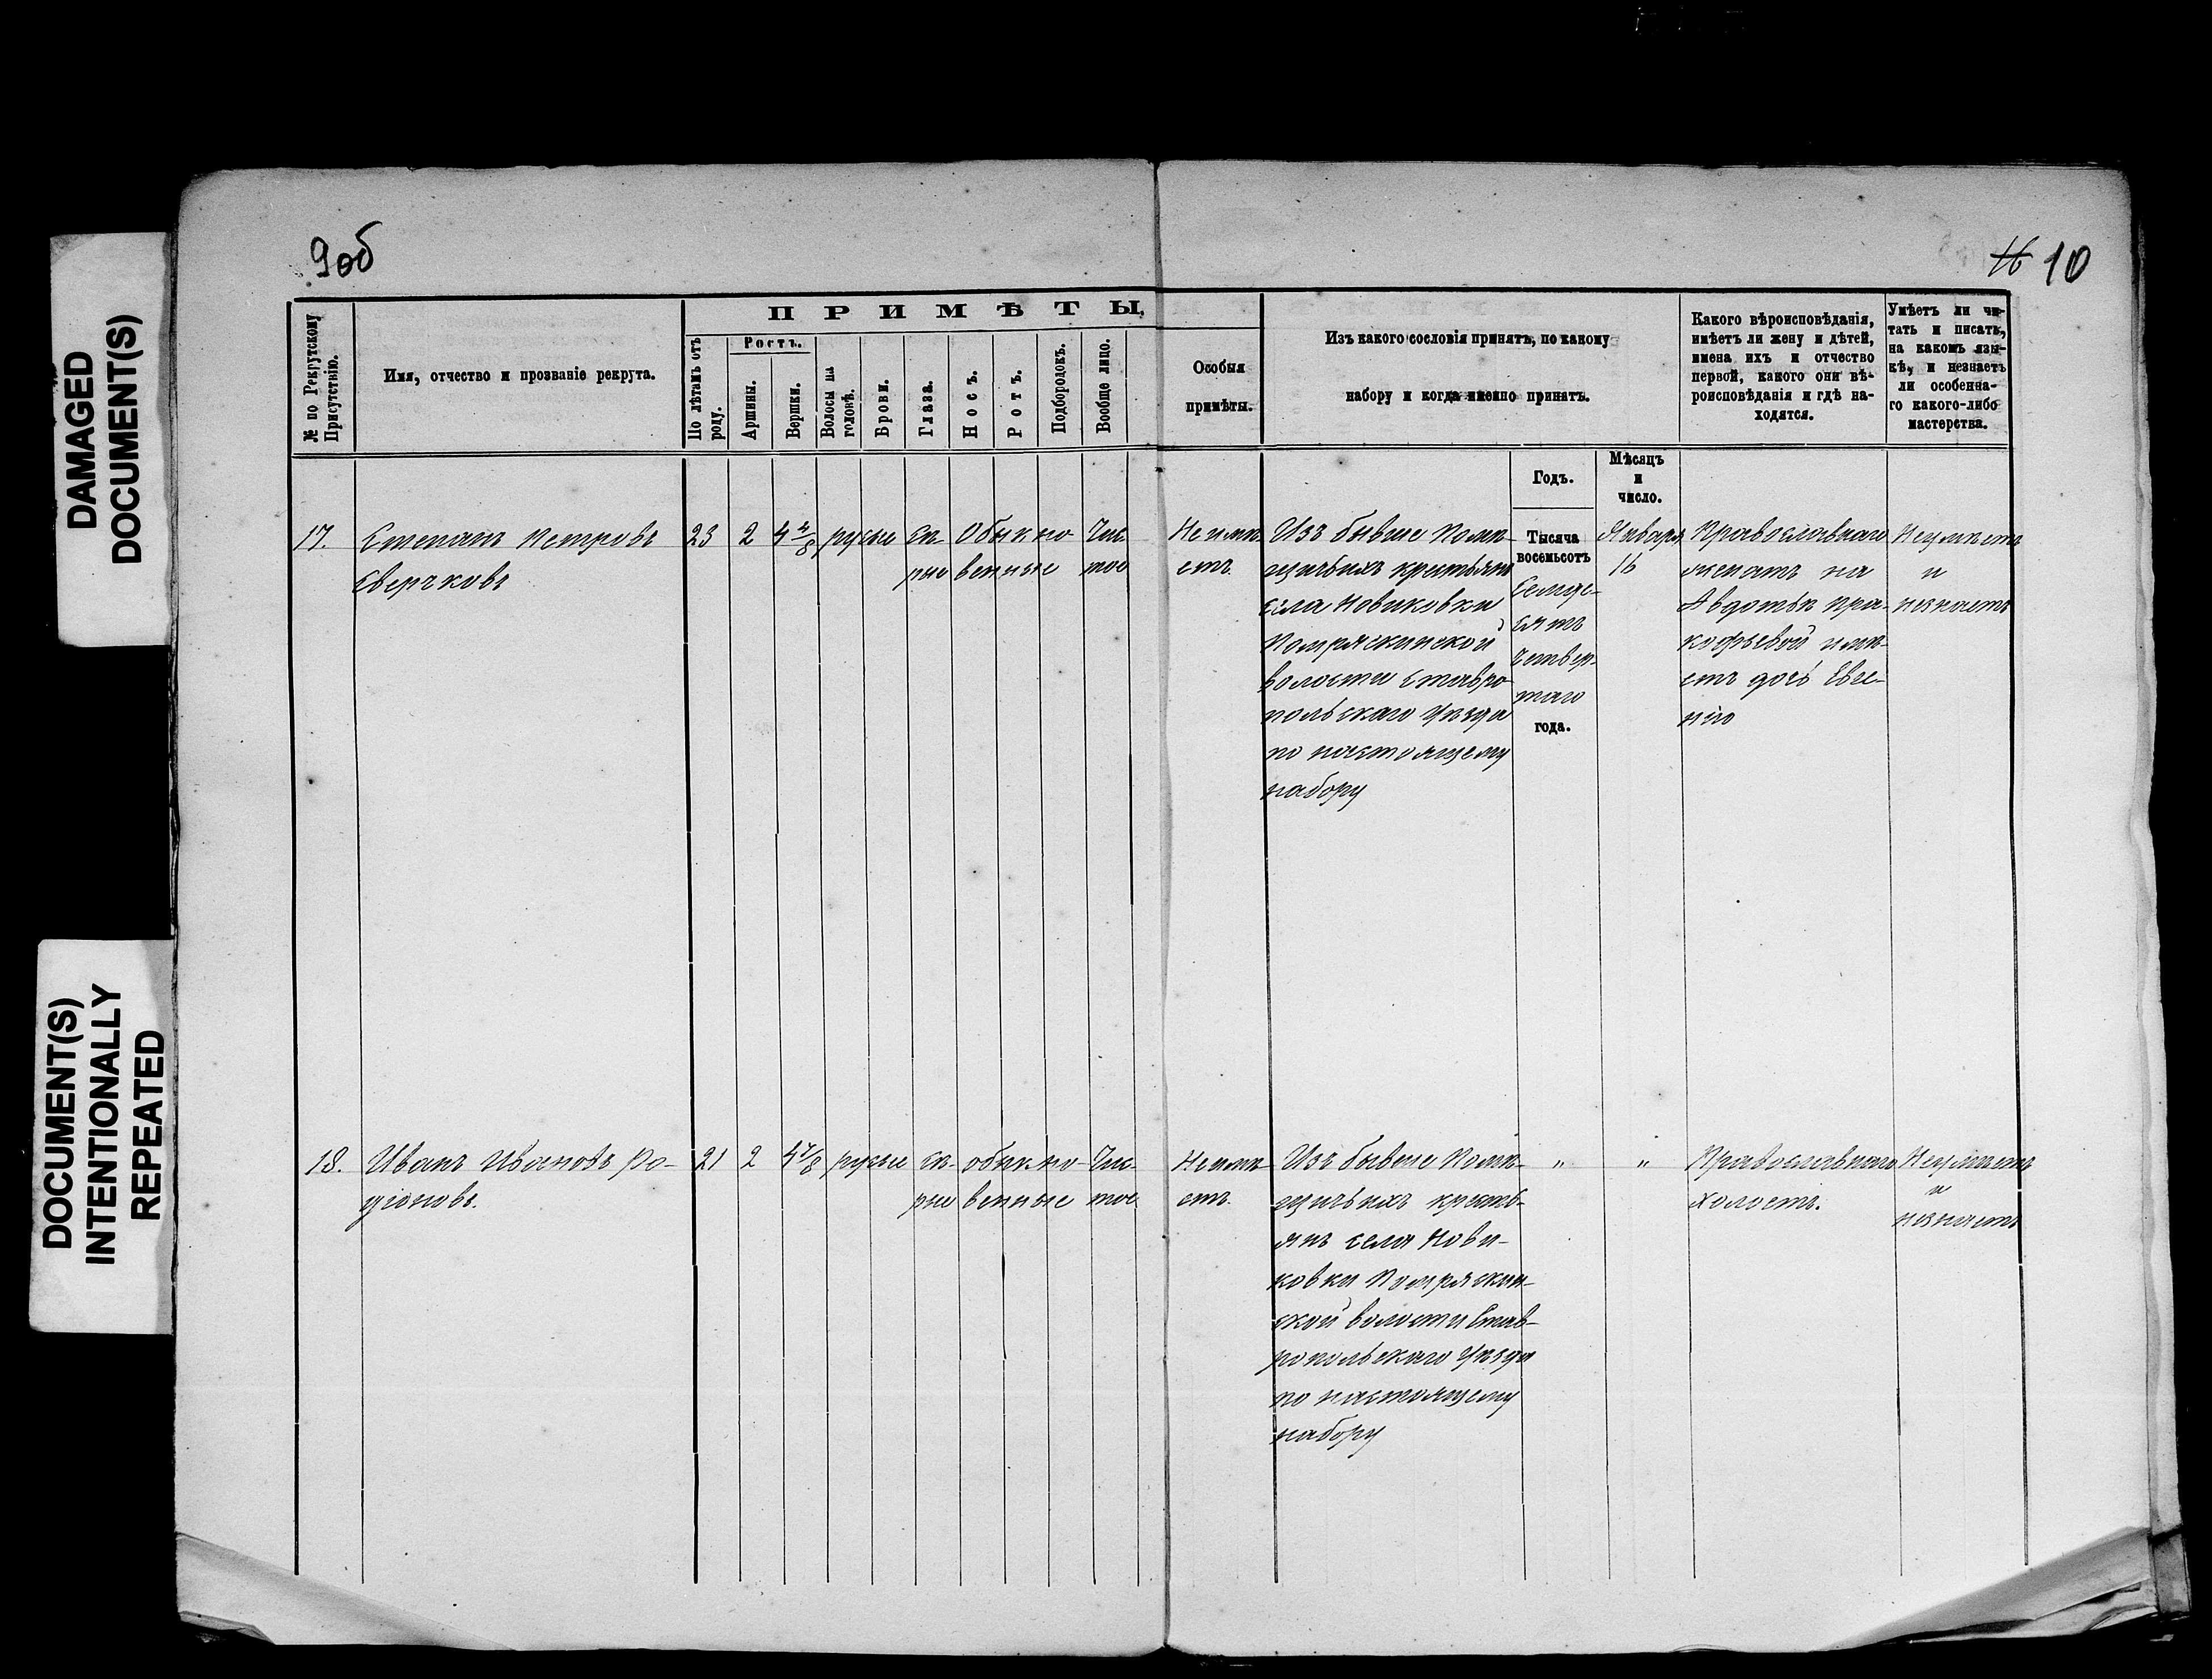 DAMAGED
DOCUMENT(S)
DOCUMENT(S)
INTENTIONALLY
REPEATED
9об
10
№ по Рекрутскому
Присутствію.
Имя, отчество и прозваніе рекрута.
ПРИМѢТЫ.
По лѣтамъ отъ
роду.
Ростъ.
Аршины.
Вершки.
Волосы на
головѣ.
Брови.
Глаза.
Носъ.
Ротъ.
Подбородокъ.
Вообще лицо.
Особыя
примѣты.
Изъ какого сословія принятъ, по какому
набору и когда именно принятъ.
Какого вѣроисповѣданія,
имѣетъ ли жену и дѣтей,
имена ихъ и отчество
первой, какого они вѣ-
роисповѣданія и гдѣ на-
ходятся.
Умѣетъ ли чи-
тать и писать,
на какомъ язы-
кѣ, и незнаетъ
ли особенна-
го какого-либо
мастерства.
Годъ.
Мѣсяцъ
и
число.
17.
Степанъ Петровъ
Сверчковъ
23
2
4 4/8
русые
сѣ-
рые
Обыкно
венные
Чис
тое
Не имѣ
етъ.
Изъ бывше Помѣ-
щичьихъ крестьянъ
села Новиковки
Помряскинской
волости Ставро
польскаго Уѣзда
по настоящему
набору
Тысяча
восемьсотъ
Семиде-
сятъ
четвер-
таго
года.
Января
16
Православнаго
женатъ на
Авдотьѣ Про-
кофьевой имѣ-
етъ дочь Евге-
нію
Неумѣетъ
и
незнаетъ
18.
Иванъ Ивановъ Ро-
діоновъ.
21
2
4 7/8
русые
сѣ-
рые
обыкно-
венные
Чис-
тое
Не имѣ
етъ.
Изъ бывше Помѣ-
щичьихъ кресть-
янъ села Нови-
ковки Помряскин-
ской волости Став-
ропольскаго Уѣзда
по настоящему
набору
"
"
Православнаго
холостъ.
Неумѣетъ
и
незнаетъ